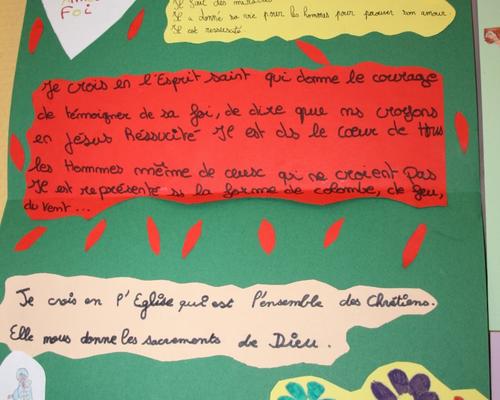 Foi
Il fait des miracles
Il a donné sa vie pour les hommes pour prouver son amour.
Il est ressuscité
Je crois en l'Esprit saint qui donne le courage
de témoigner de sa foi, de dire que ns croyons
en Jésus Réssucité Il est ds le cœur de tous
les Hommes même de ceux qui ne croient pas
Il est représenté si la forme de colombe, de feu,
du vent...
Je crois en l'Eglise qui est l'ensemble des Chrétiens.
Elle nous donne les sacrements de Dieu.